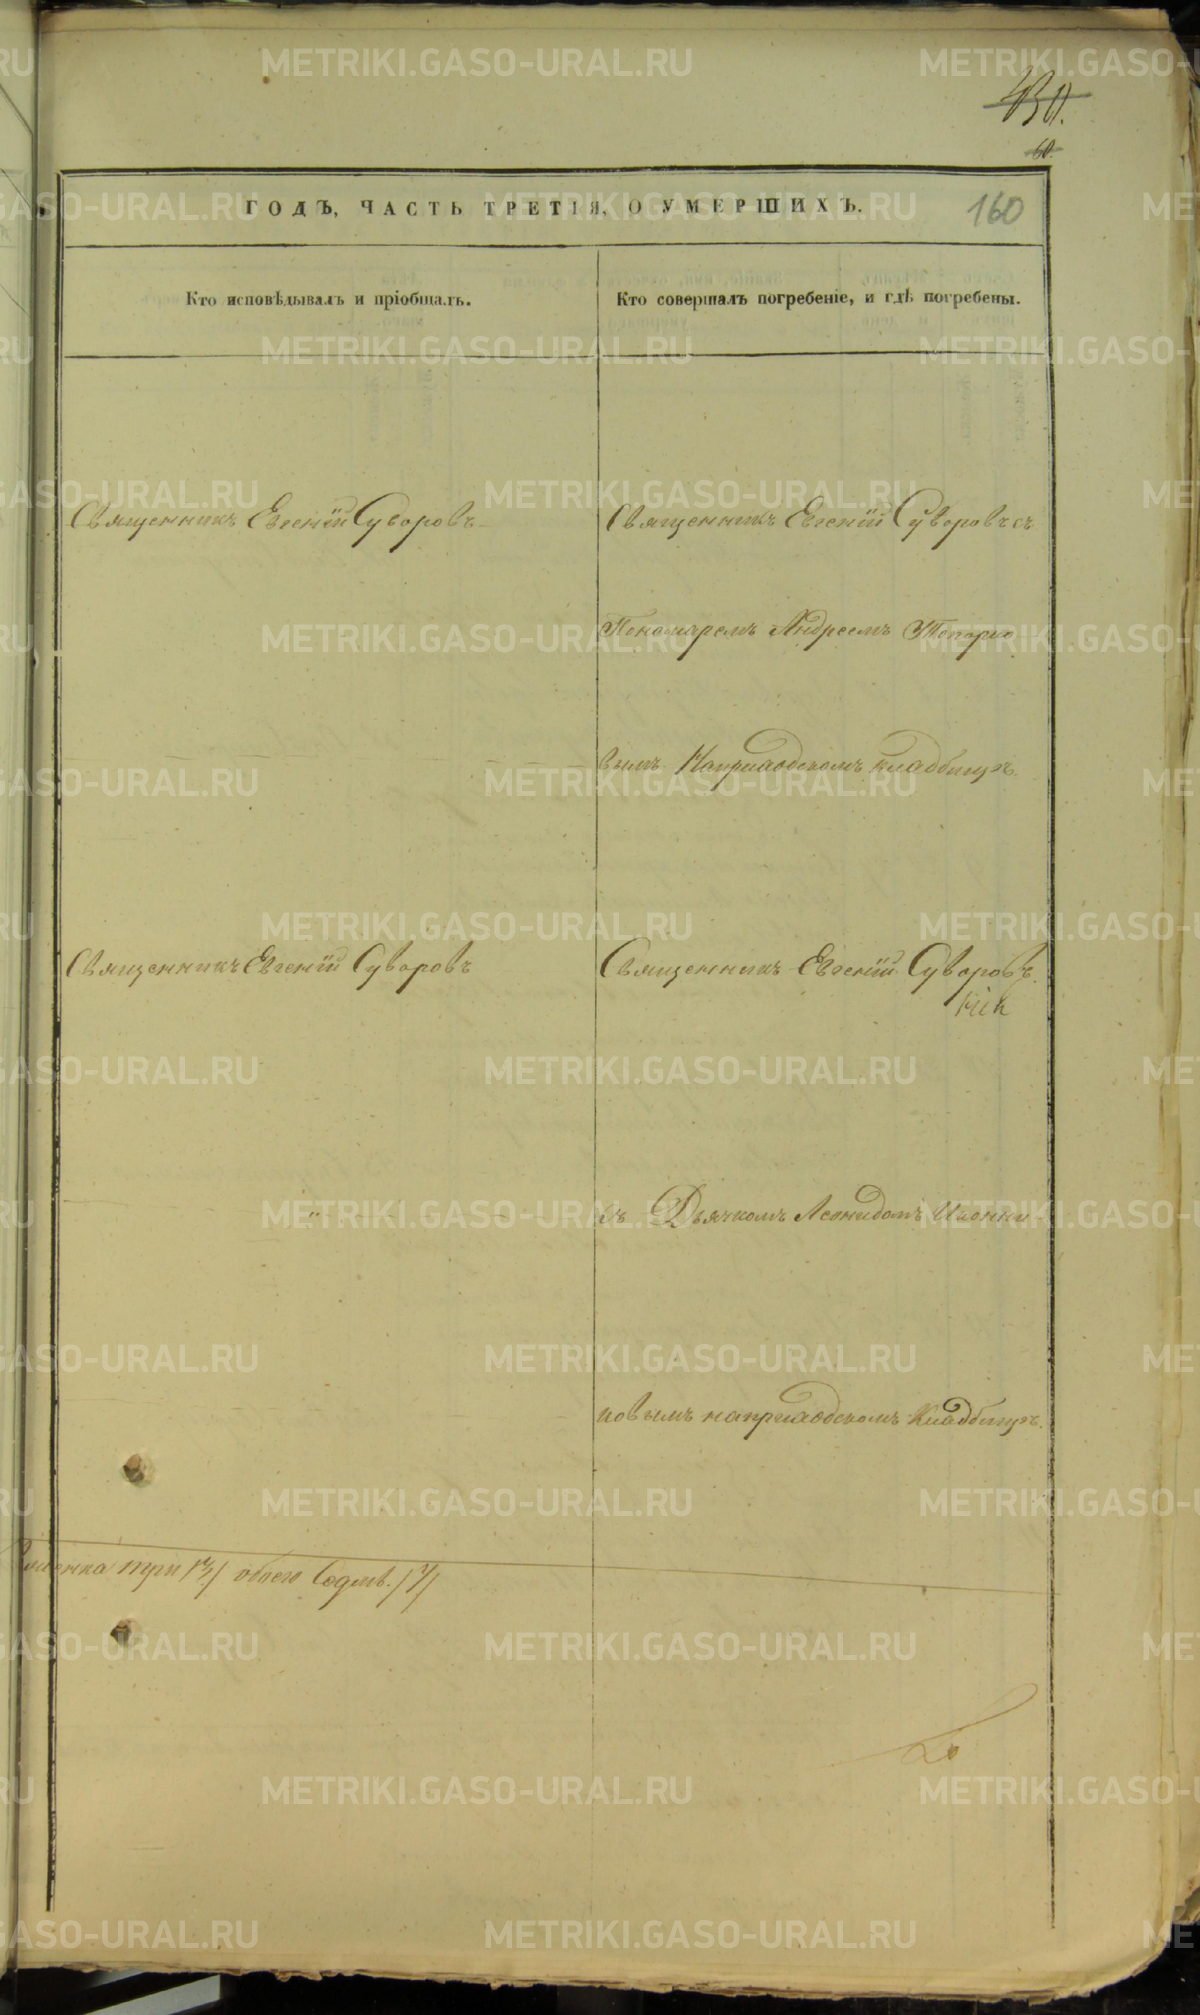 430.
60.
ГОДЪ, ЧАСТЬ ТРЕТІЯ, О УМЕРШИХЪ.
160
Кто исповѣдывалъ и пріобщалъ.
Кто совершалъ погребеніе, и гдѣ погребены.
Священникъ Евгеній Суворовъ
Священникъ Евгеній Суворовъ съ
Пономаремъ Андреемъ Топорко
вымъ Наприходскомъ кладбищѣ.
Священникъ Евгеній Суворовъ
Священникъ Евгеній Суворовъ
съ Дьячкомъ Леонидомъ Иконни-
ковымъ наприходскомъ Кладбищѣ.
женска три /3/ обоего Седмь. /7/
METRIKI.GASO-URAL.RU